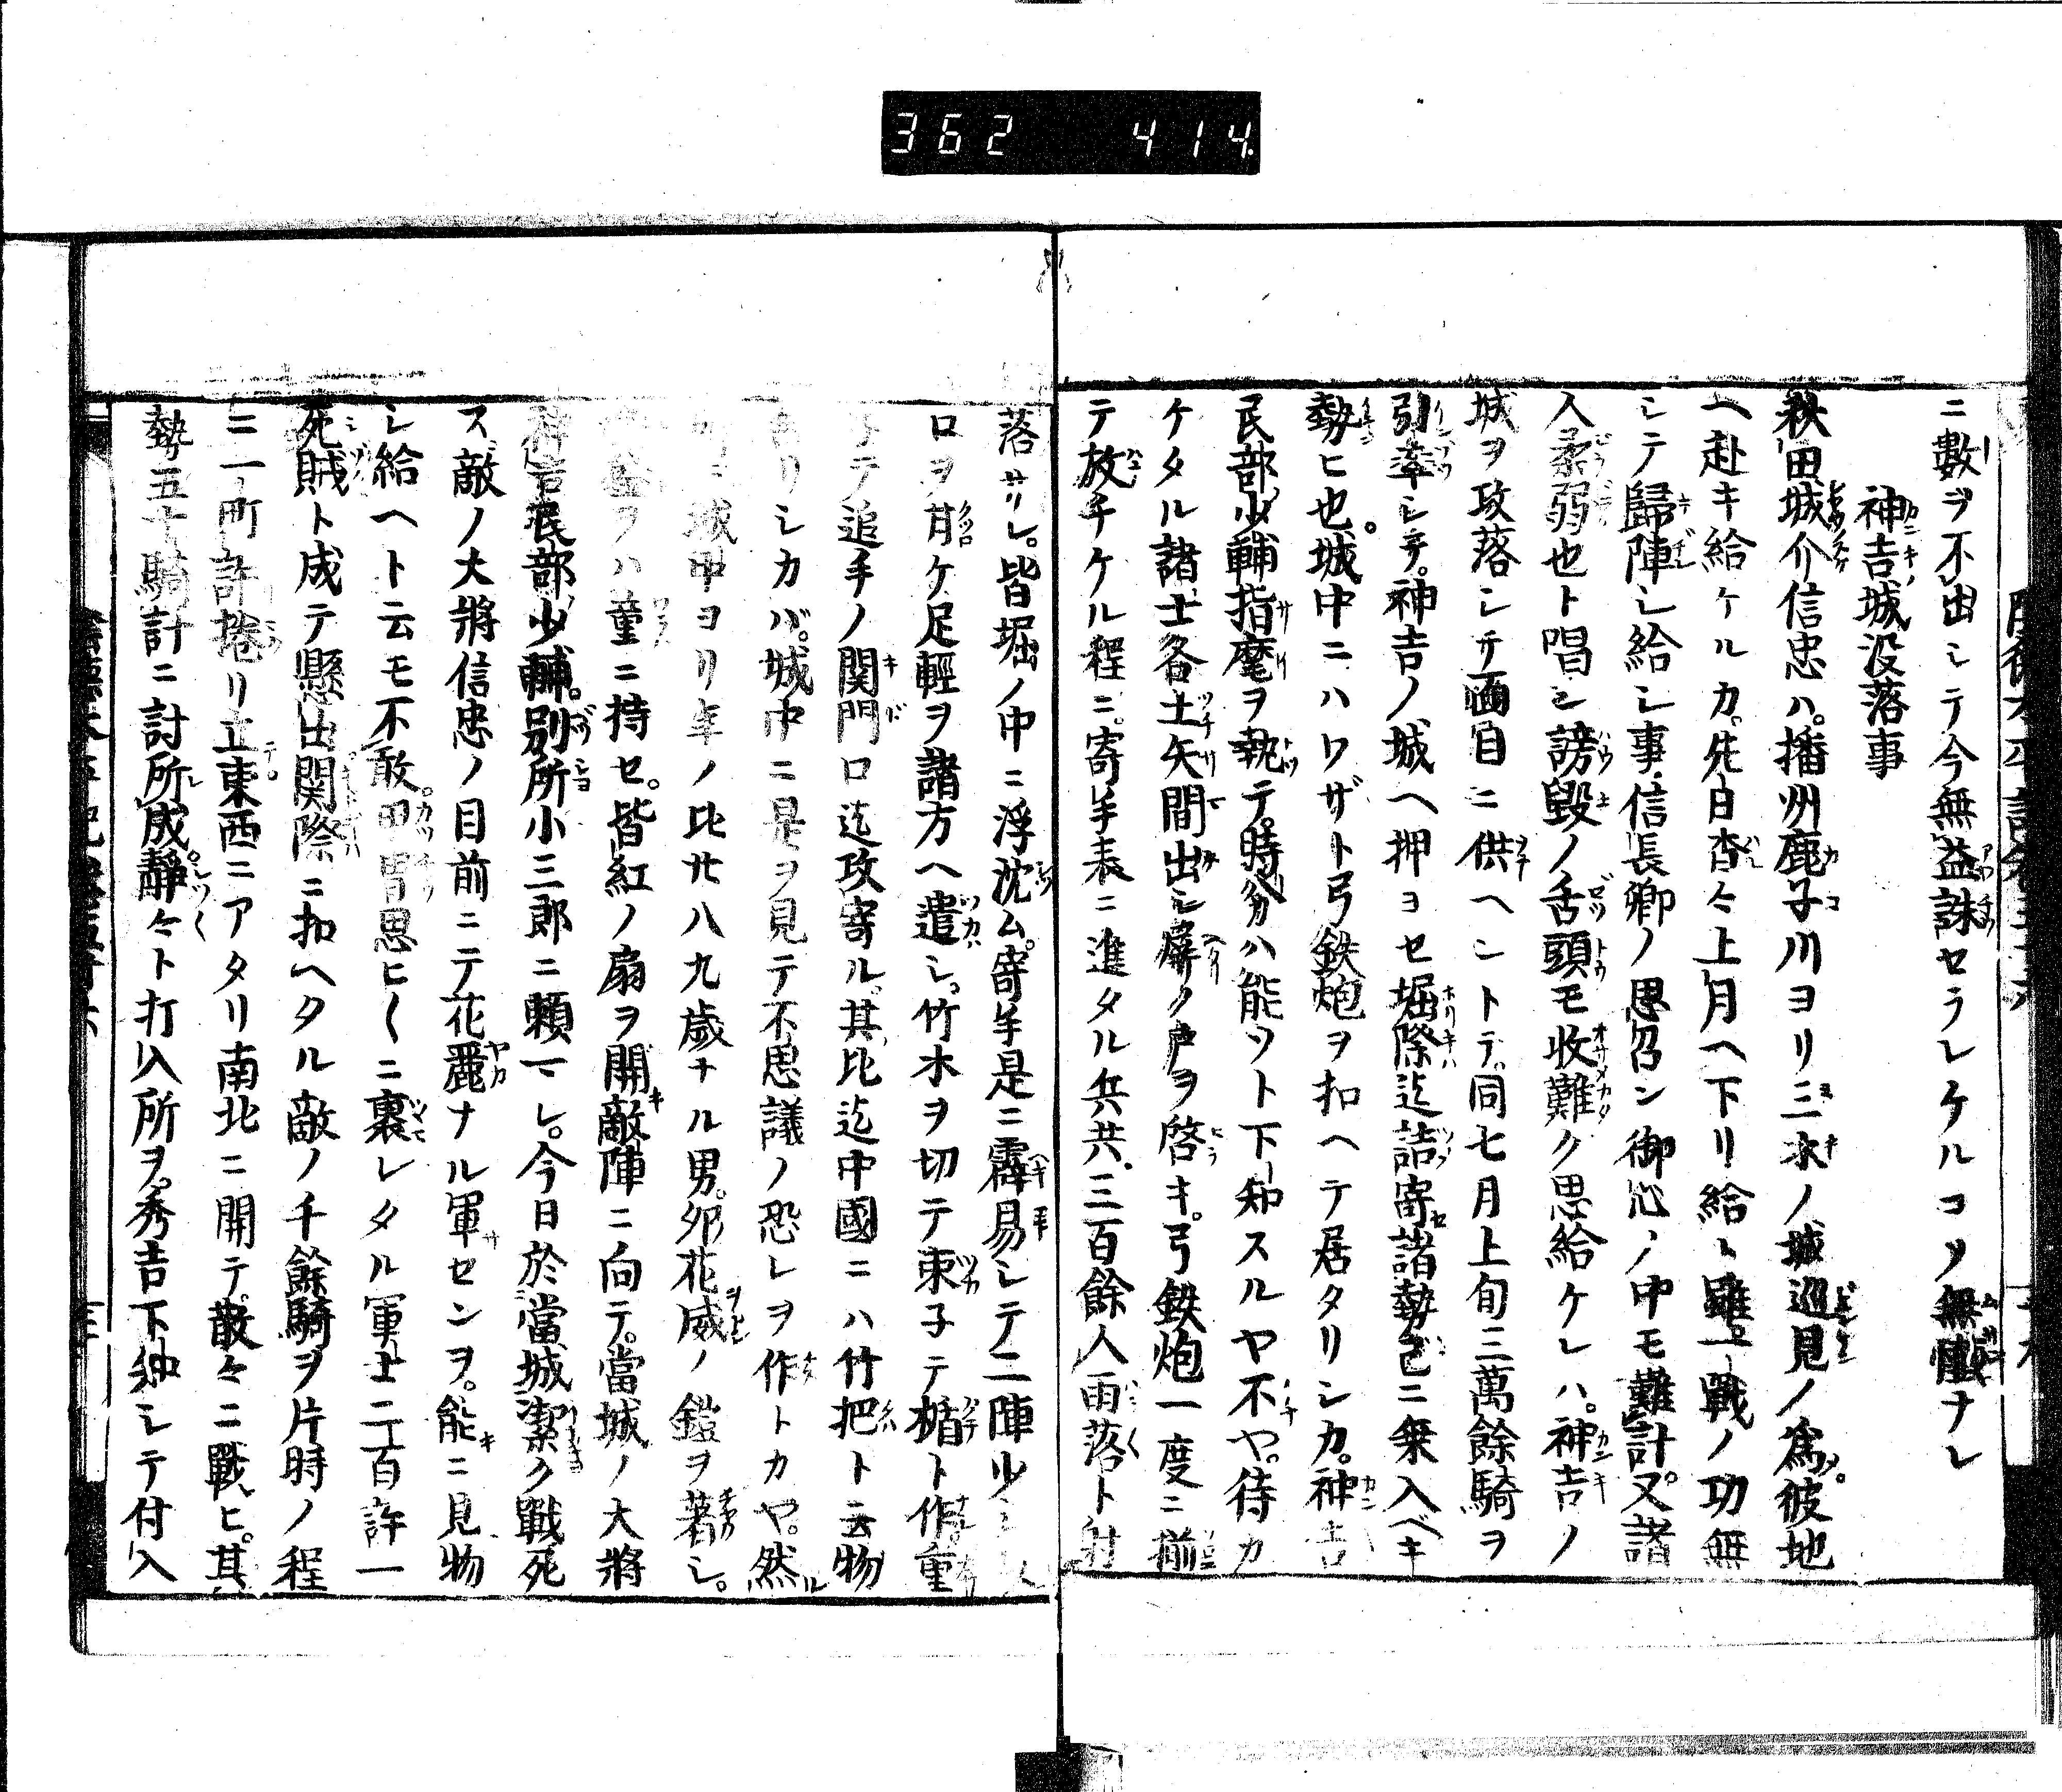 362 414
ニ數ヲ不出シテ今無益誅セラレケルコソ無慙ナレ
神吉城没落事
秋田城介信忠ハ。播州鹿子川ヨリ三木ノ城巡見ノ爲。彼地
ヘ赴キ給ケルカ。先日杳々上月ヘ下リ給ト雖一戰ノ功無
シテ歸陣シ給シ事。信長卿ノ思召ン御心ノ中モ難計。又諸
人柔弱也ト唱シ謗毀ノ舌頭モ收難ク思給ケレハ。神吉ノ
城ヲ攻落シテ面目ニ供ヘントテ。同七月上旬三萬餘騎ヲ
引率シテ。神吉ノ城ヘ押ヨセ堀際迄詰寄諸勢已ニ乗入ベキ
勢ヒ也。城中ニハワザト弓鉄炮ヲ扣ヘテ居タリシカ。神吉
民部少輔指麾ヲ執テ。時分ハ能ソト下知スルヤ不ヤ。待カ
ケタル諸士各土矢間出シ塀ノ戸ヲ啓キ。弓鉄炮一度ニ揃
テ放チケル程ニ。寄手表ニ進タル兵共。三百餘人雨落ト射
落サリレ。皆堀ノ中ニ浮沈ム。寄手是ニ霹易シテ二陣少シ
ロヲ甘ケ足輕ヲ諸方ヘ遣シ。竹木ヲ切テ束子テ楯ト作重
テ追手ノ関門口迄攻寄ル。其比迄中國ニハ竹把ト云物
リシカバ。城中ニ是ヲ見テ不思議ノ恐レヲ作トカヤ。然
ニ城中ヨリ年ノ比廿八九歳ナル男。卯花威ノ鎧ヲ著シ。
ヲハ童ニ持セ。皆紅ノ扇ヲ開敵陣ニ向テ。當城ノ大將
神吉民部少輔。別所小三郎ニ頼マレ。今日於當城潔ク戰死
ス。敵ノ大將信忠ノ目前ニテ花麗ナル軍センヲ。能ニ見物
シ給ヘト云モ不敢。甲冑思ヒ〱ニ裹レタル軍士二百許一
死賊ト成テ懸出関際ニ扣ヘタル敵ノ千餘騎ヲ片時ノ程
ニ一町許捲リ立東西ニアタリ南北ニ開テ。散々ニ戰ヒ。其
勢五十騎計ニ討所成。靜々ト打入所ヲ。秀吉下知シテ付入